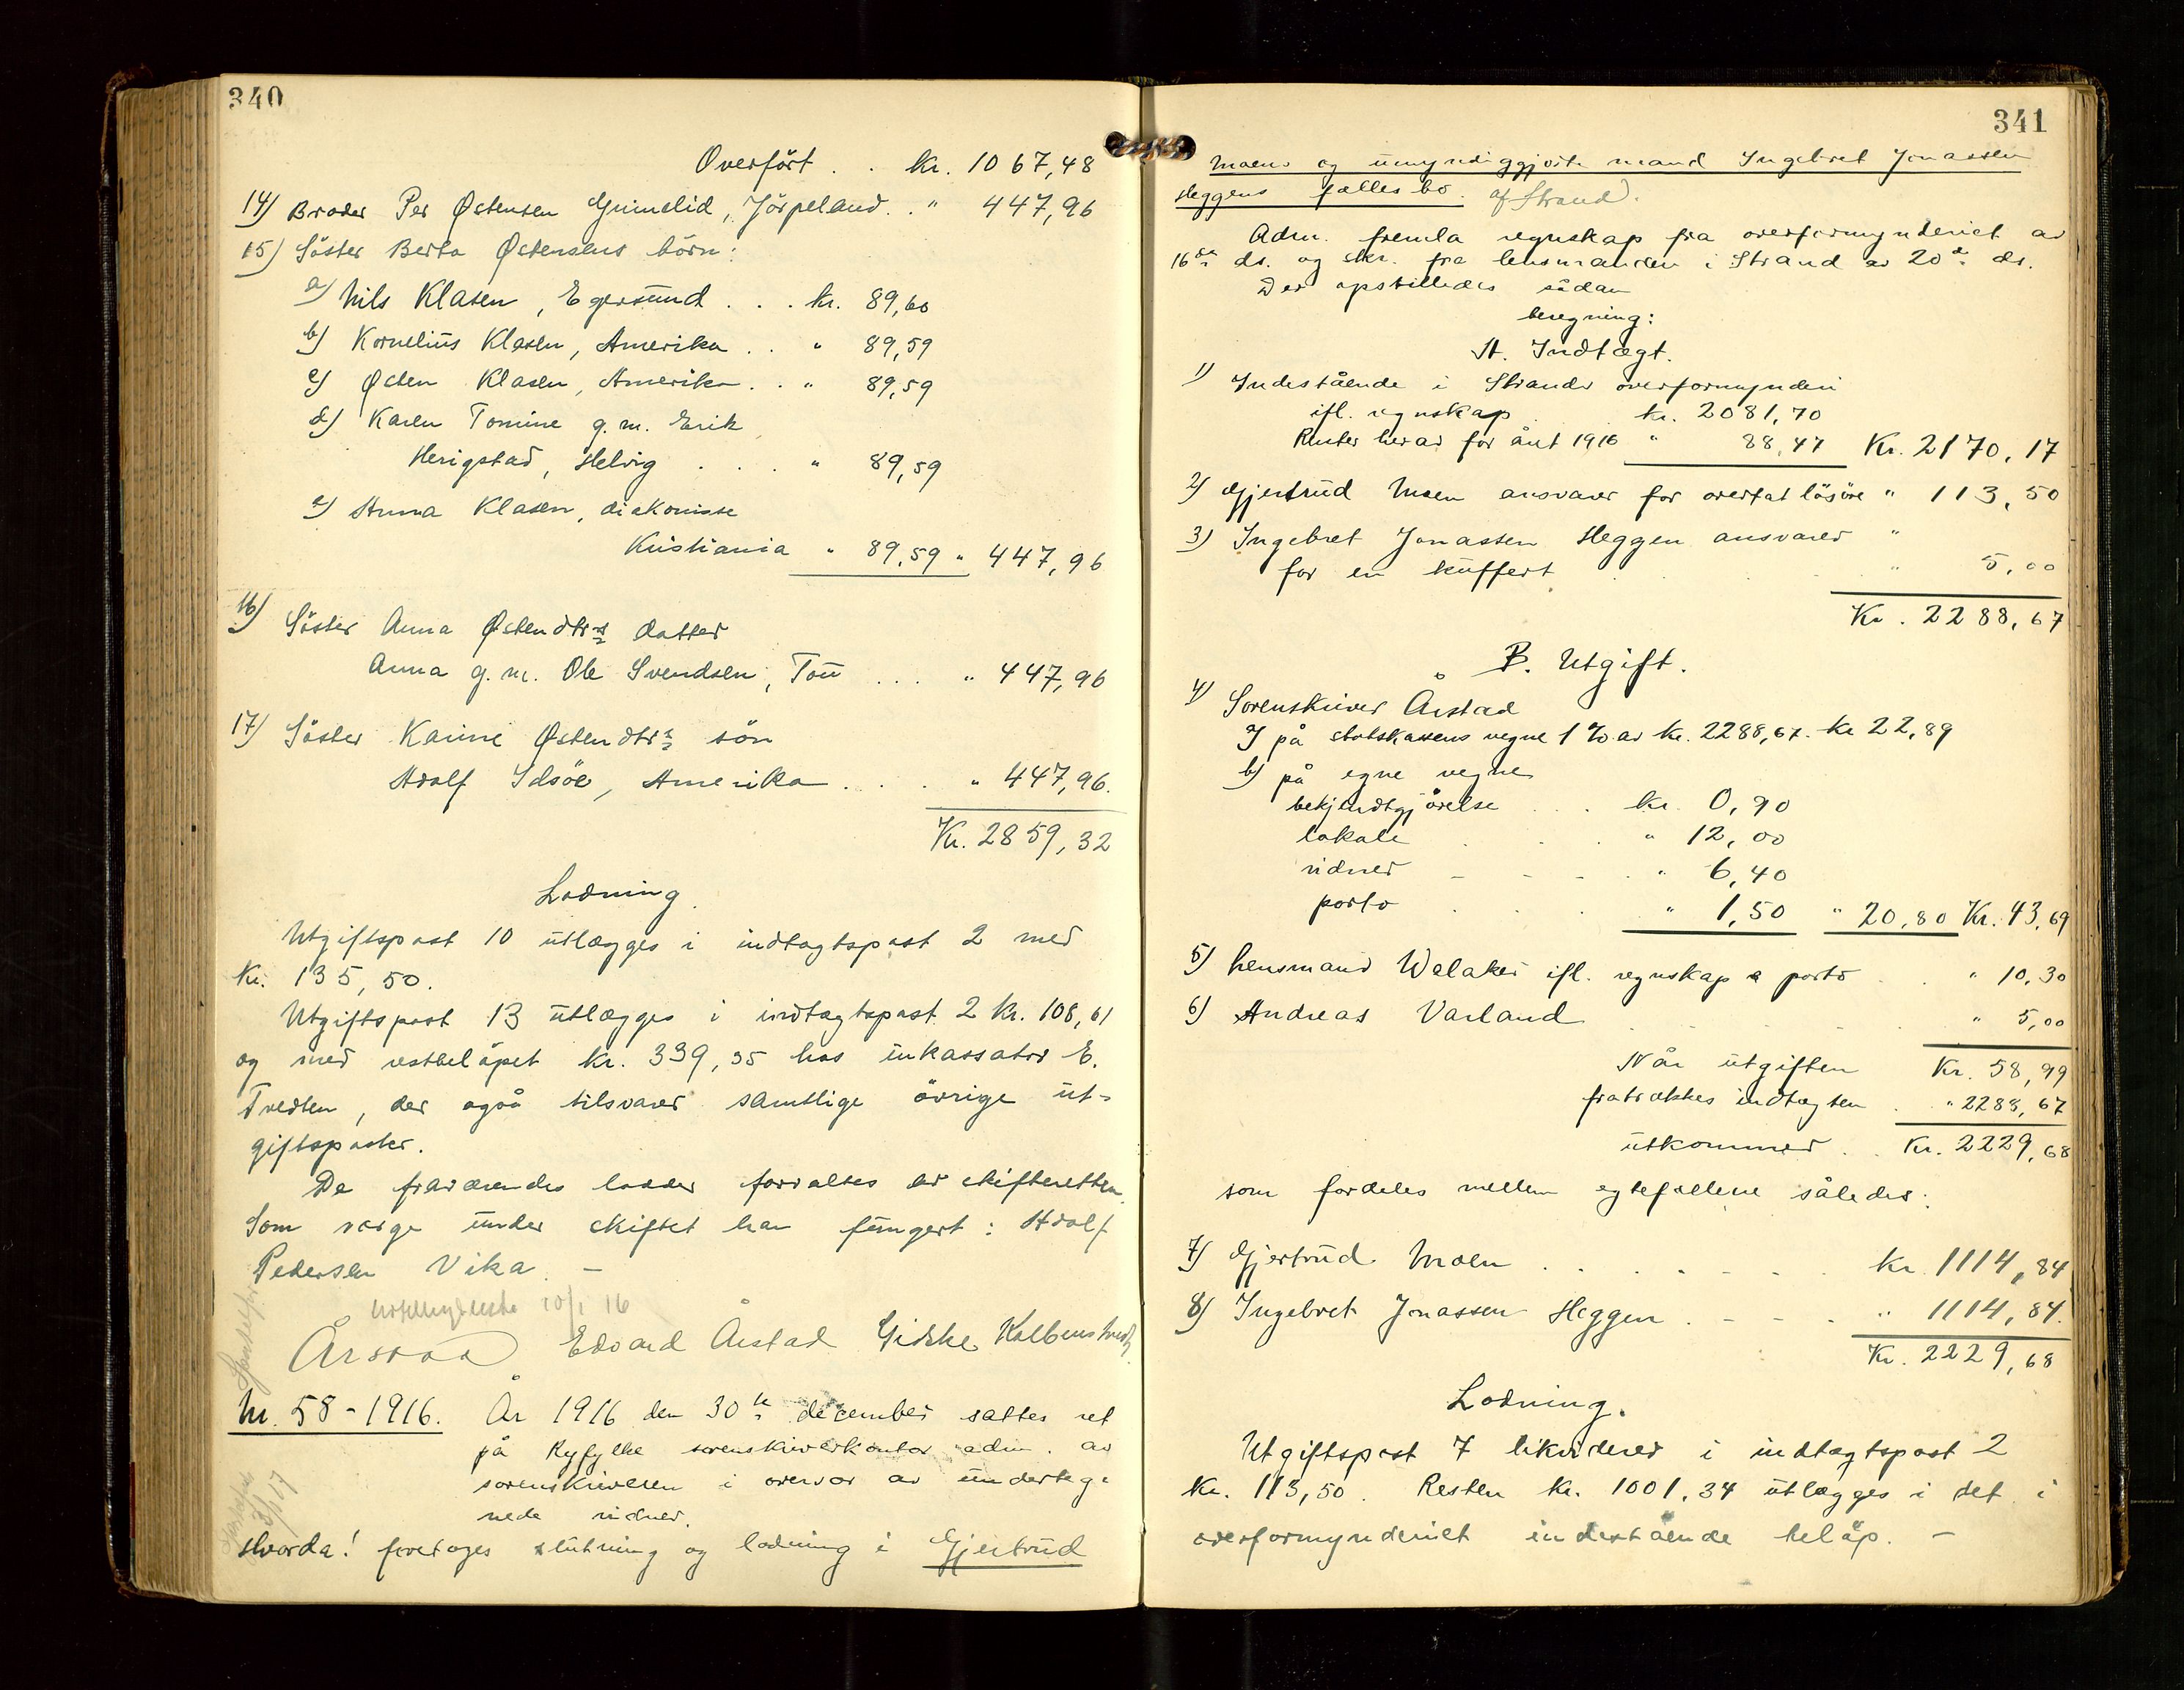 340
Overført . . kr. 1067,48
14) Broder Per Østensen Grimelid, Jørpeland . . " 447,96
15) Søster Berta Østensens børn:
a) Nils Klasen, Egersund . . . kr. 89,60
b) Kornelius Klasen, Amerika . . " 89,59
c) Østen Klasen, Amerika . . " 89,59
d) Karen Tomine g. m. Erik
Herigstad, Helvig . . . " 89,59
e) Anna Klasen, diakonisse
Kristiania " 89,59 " 447,96
16) Søster Anna Østendtrs datter
Anna g. m. Ole Svendsen, Tou . . . " 447,96
17) Søster Karine Østendtrs søn
Adolf Idsöe, Amerika . . . " 447,96.
Kr. 2859,32
Lodning.
Utgiftspost 10 utlægges i indtægtspost 2 med
kr. 135,50.
Utgiftspost 13 utlægges i indtægtspost 2 kr. 108,61
og med restbeløpet kr. 339,35 hos inkassator E.
Tvedten, der også tilsvarer samtlige øvrige ut-
giftsposter.
De fraværendes lodder forvaltes av skifteretten.
Som verge under skiftet har fungert: Adolf
Pedersen Vika. –
10/1 16
Årstad Edvard Årstad Gidske Kolbenstvedt
Nr. 58 - 1916. År 1916 den 30te december sattes ret
på Ryfylke sorenskriverkontor adm. av
sorenskriveren i overvær av underteg-
nede vidner.
3/1 17
Hvorda! foretoges slutning og lodning i Gjertrud
341
Moens og umyndiggjorte mand Ingebret Jonassen
Heggens fællesbo. af Strand.
Adm. fremla regnskap fra overformynderiet av
16de ds. og skr. fra lensmanden i Strand av 20de ds.
Der opstilledes sådan
beregning:
A. Indtægt.
1) Indestående i Strands overformynderi
ifl. regnskap kr. 2081,70
Renter herav for året 1916 " 88,47 Kr. 2170,17
2) Gjertrud Moen ansvarer for overtat løsøre " 113,50
3) Ingebret Jonassen Heggen ansvarer "
for en kuffert . . . " 5,00
Kr. 2288,67
B. Utgift.
4) Sorenskriver Årstad
a) på statskassens vegne 1 % av kr. 2288,67. kr 22,89
b) på egne vegne
bekjendtgjørelse . . . kr. 0,90
lokale . . . " 12,00
vidner - - - " 6,40
porto . . . " 1,50 " 20,80 Kr. 43,69
5) Lensmand Walaker ifl. regnskap a porto . . " 10,30
6) Andreas Varland . . . " 5,00
Når utgiften Kr. 58,99
fratrækkes indtægten . " 2288,67
utkommer . . Kr. 2229,68
som fordeles mellem egtefællene således:
7) Gjertrud Moen . . . . Kr. 1114,84
8) Ingebret Jonassen Heggen . - - " 1114,84.
Kr. 2229,68
Lodning.
Utgiftspost 7 likviderer i indtægtspost 2
kr. 113,50. Resten kr. 1001,34 utlægges i det i
overformynderiet indestående beløp. –